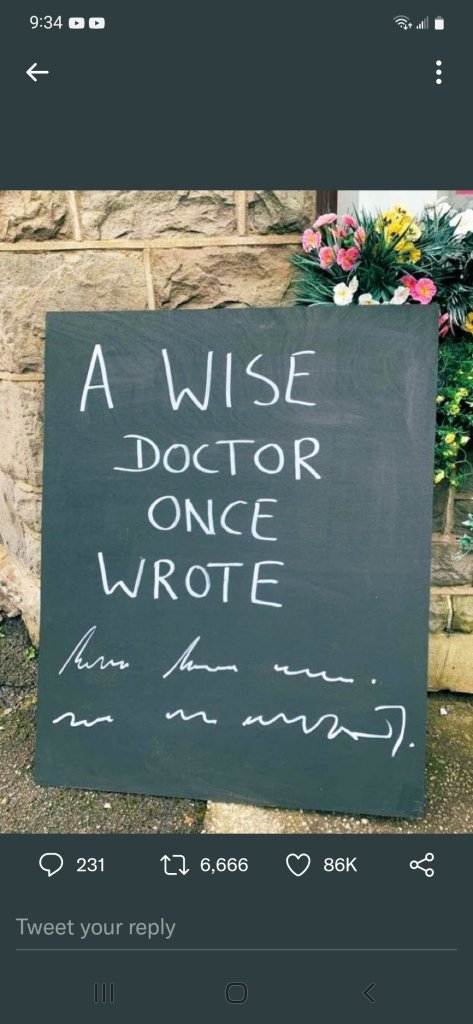 9:34
A WISE
DOCTOR
ONCE
WROTE
231
6,666
86K
Tweet your reply